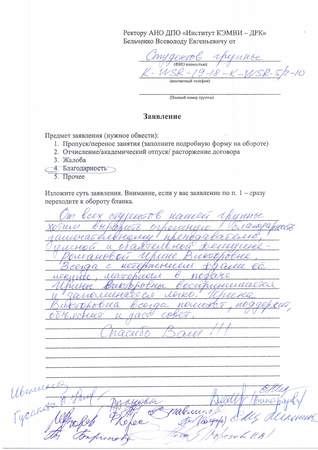 Ректору АНО ДПО «Институт КЭМВИ – ДРК»
Бельченко Всеволоду Евгеньевичу от
Студентов группы
(ФИО полностью)
К-WSR-19-18-К-WSR-5/п-10
(контактный телефон)
(Полный номер группы)
Заявление
Предмет заявления (нужное обвести):
1. Пропуск/перенос занятия (заполните подробную форму на обороте)
2. Отчисление/академический отпуск/ расторжение договора
3. Жалоба
4. Благодарность
5. Прочее
Изложите суть заявления. Внимание, если у вас заявление по п. 1 – сразу
переходите к обороту бланка.
От всех студентов нашей группы
хотим выразить огромную благодарность
замечательному преподавателю,
умной и обаятельной женщине -
Романовой Ирине Викторовне.
Всегда с нетерпением ждали её
лекции, материал в подаче
Ирины Викторовны воспринимается
и запоминается легко. Ирина
Викторовна всегда поможет, поддержит,
объяснит и даст совет.
Спасибо Вам!!!